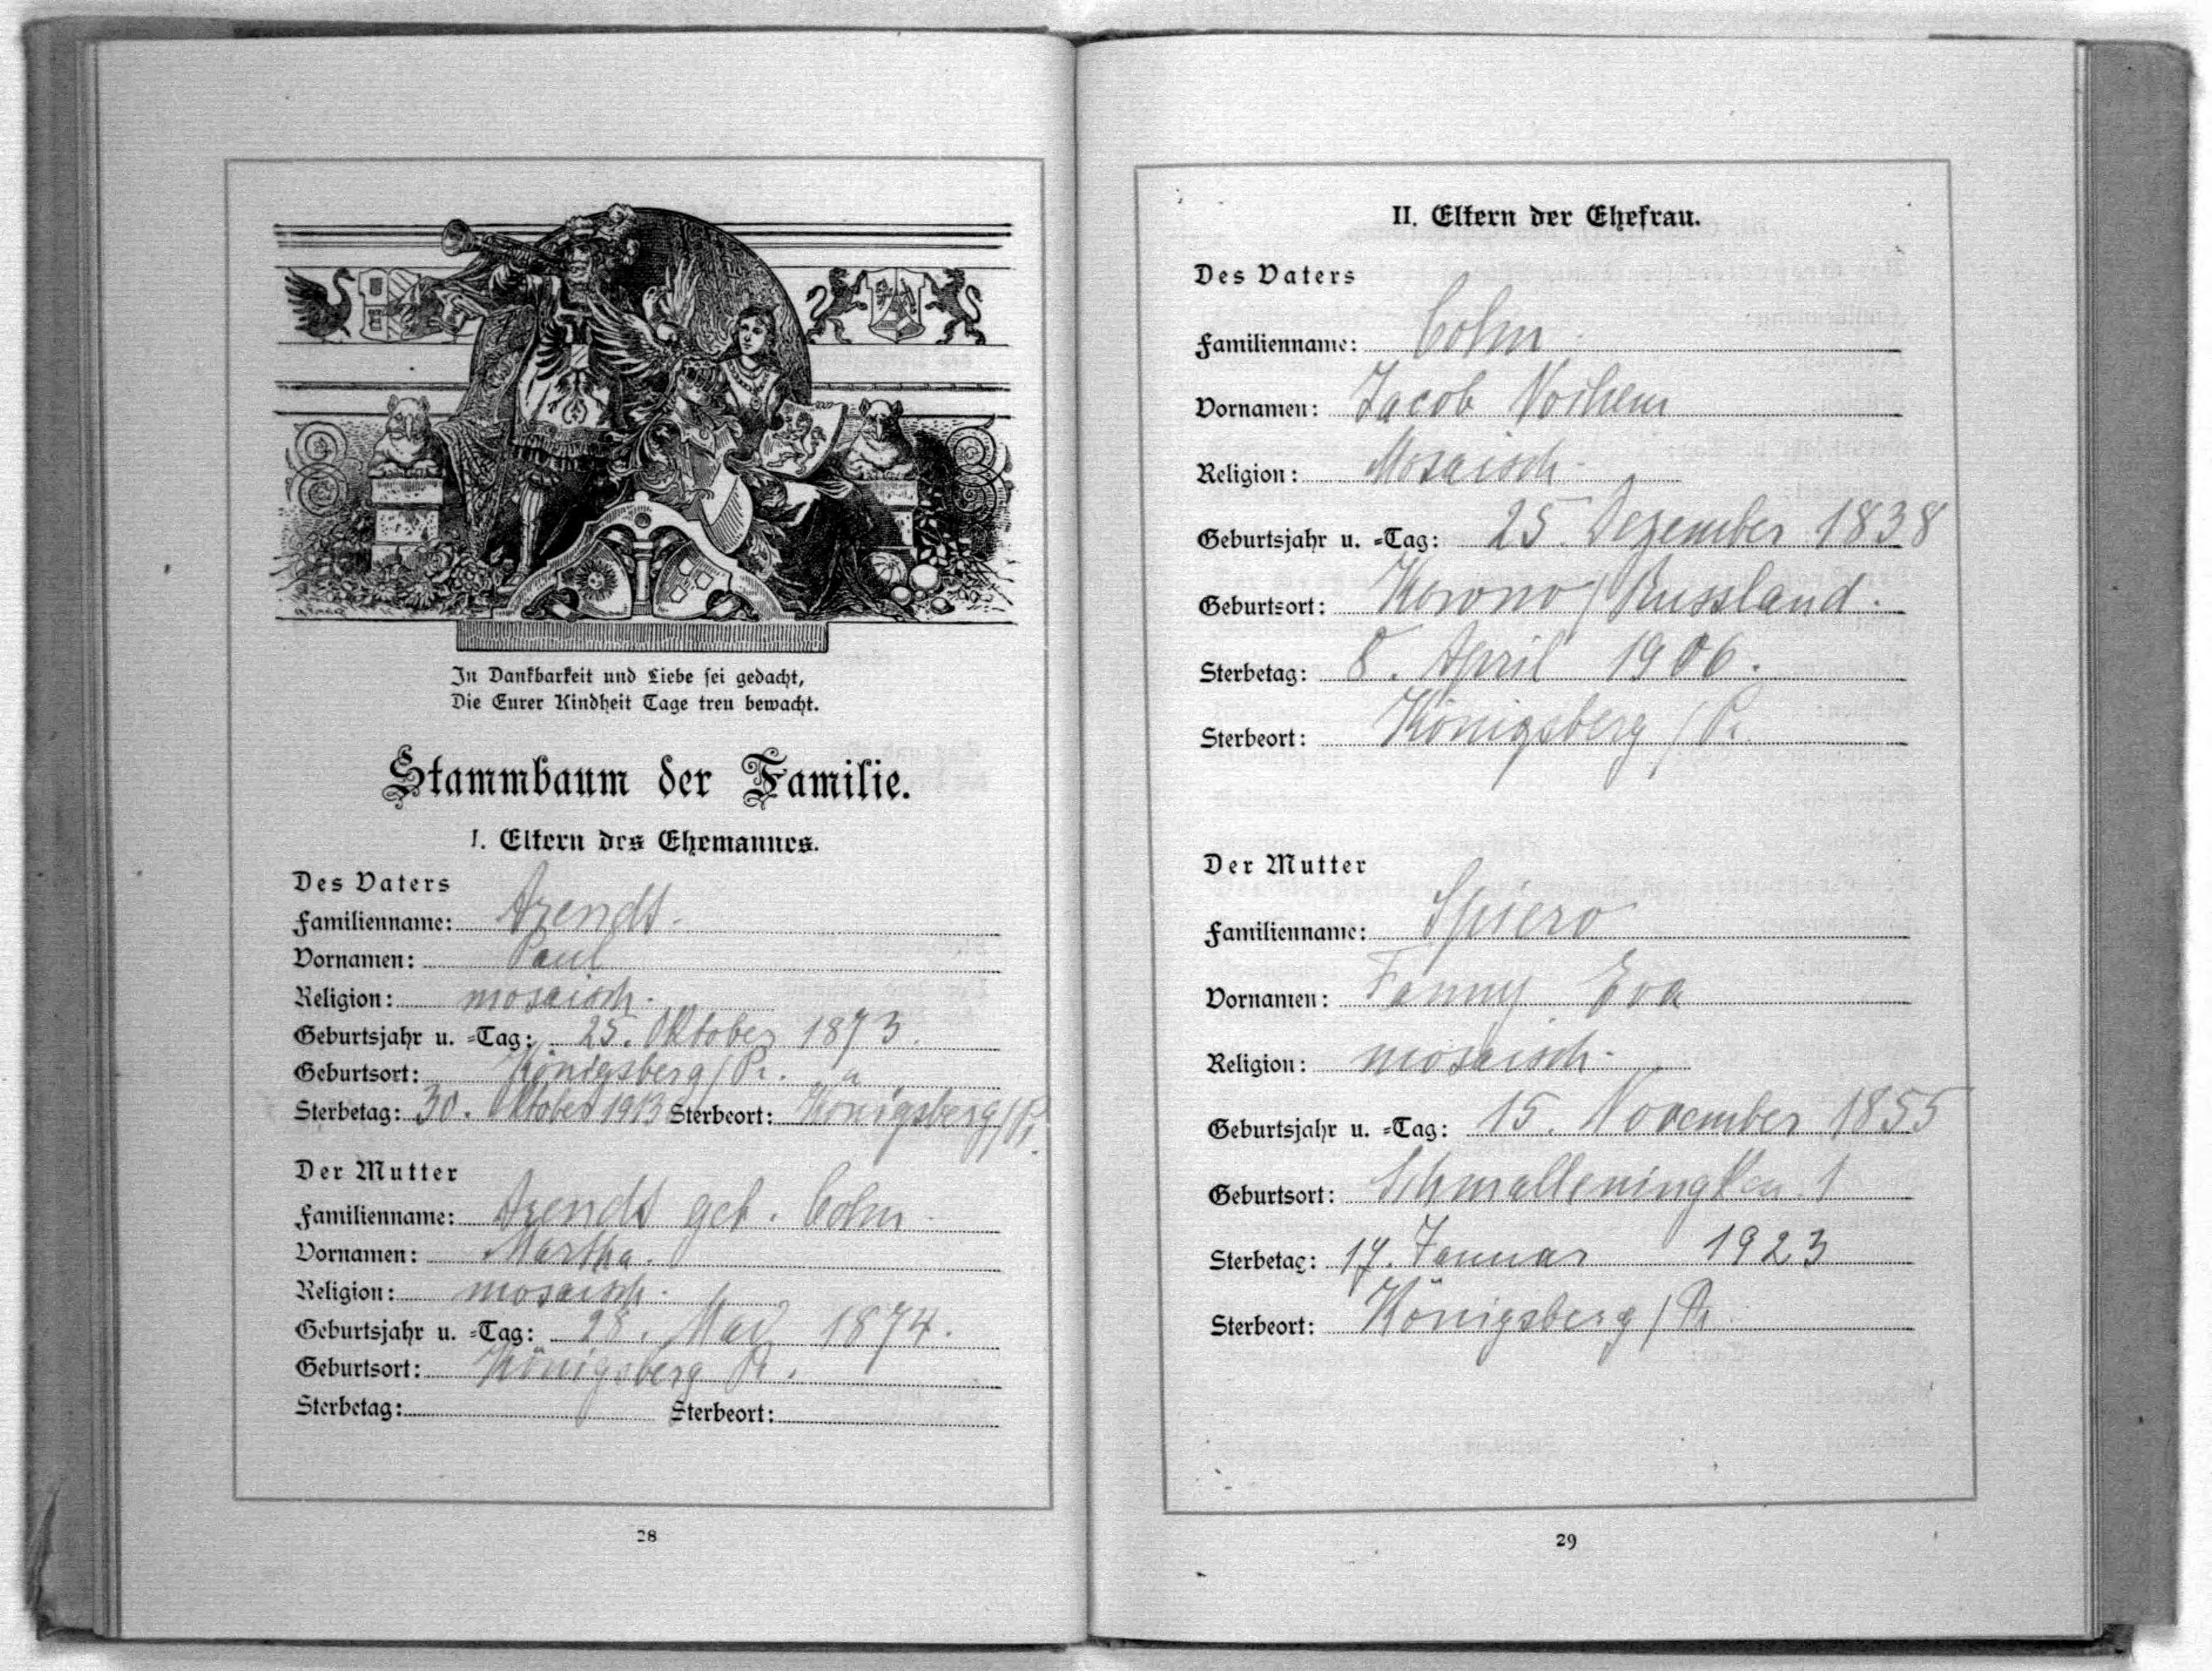 In Dankbarkeit und Liebe sei gedacht,
Die Eurer Kindheit Tage treu bewacht.
Stammbaum der Familie.
I. Eltern des Ehemannes.
Des Vaters
Familienname: Arendt.
Vornamen: Paul
Religion: mosaisch.
Geburtsjahr u. =Tag: 25. Oktober 1873.
Geburtsort: Königsberg / Pr.
Sterbetag: 30. Oktober 1913 Sterbeort: Königsberg / Pr.
Der Mutter
Familienname: Arendt geb. Cohn.
Vornamen: Martha.
Religion: mosaisch.
Geburtsjahr u. =Tag: 28. Mai 1874.
Geburtsort: Königsberg Pr.
Sterbetag: Sterbeort:
28
II. Eltern der Ehefrau.
Des Vaters
Familienname: Cohn
Vornamen: Jacob Nochem
Religion: Mosaisch
Geburtsjahr u. =Tag: 25. Dezember 1838
Geburtsort: / Russland.
Sterbetag: 8. April 1906.
Sterbeort: Königsberg / Pr.
Der Mutter
Familienname: Spiero
Vornamen: Fanny Eva
Religion: mosaisch
Geburtsjahr u. =Tag: 15. November 1855
Geburtsort: Schmalleningken
Sterbetag: 17. Januar 1923
Sterbeort: Königsberg / Pr
29